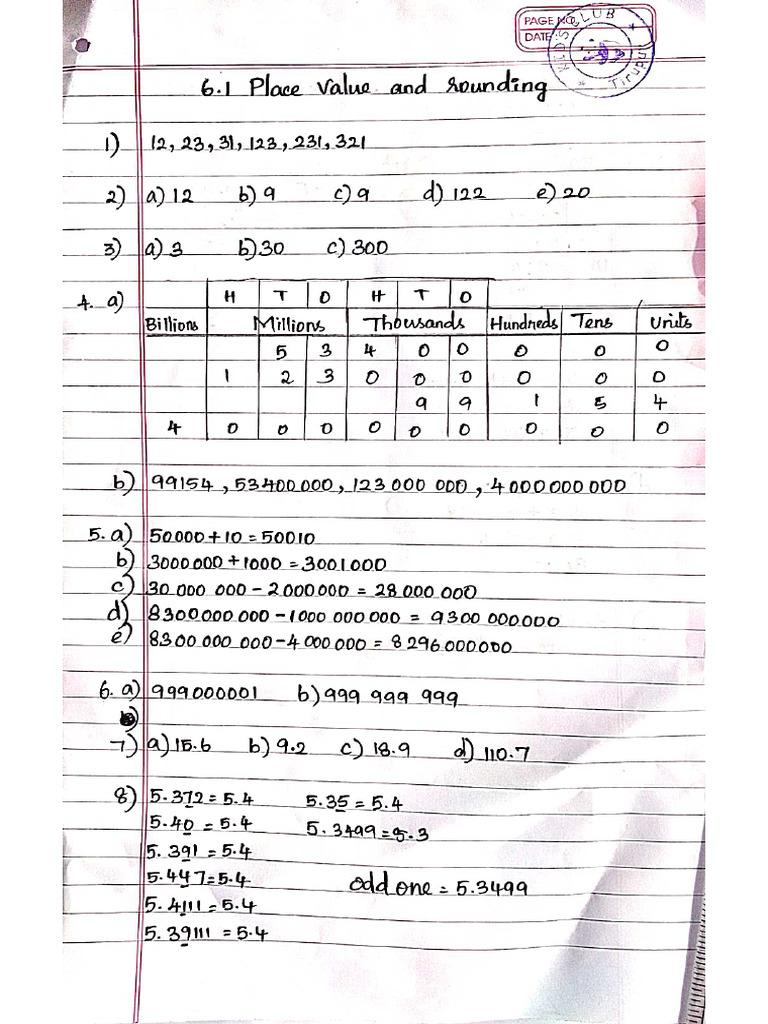 PAGE NO.
DATE:
KLUB
Tirupur
6.1 Place value and rounding
1) 12, 23, 31, 123, 231, 321
2) a) 12 b) 9 c) 9 d) 122 e) 20
3) a) 3 b) 30 c) 300
4. a) H T O H T O
Billions Millions Thousands Hundreds Tens Units
5 3 4 0 0 0 0 0
1 2 3 0 0 0 0 0 0
9 9 1 5 4
4 0 0 0 0 0 0 0 0 0
b) 99154, 53400000, 123 000 000, 4000000000
5. a) 50000 + 10 = 50010
b) 3000000 + 1000 = 3001000
c) 30 000 000 - 2000000 = 28 000 000
d) 8300000000 - 1000 000000 = 9300 000000
e) 8300 000 000 - 4 000000 = 8 296 000000
6. a) 999000001 b) 999 999 999
7) a) 15.6 b) 9.2 c) 18.9 d) 110.7
8) 5.372 = 5.4 5.35 = 5.4
5.40 = 5.4 5.3499 = 5.3
5.391 = 5.4
5.447 = 5.4 odd one = 5.3499
5.4111 = 5.4
5.39111 = 5.4